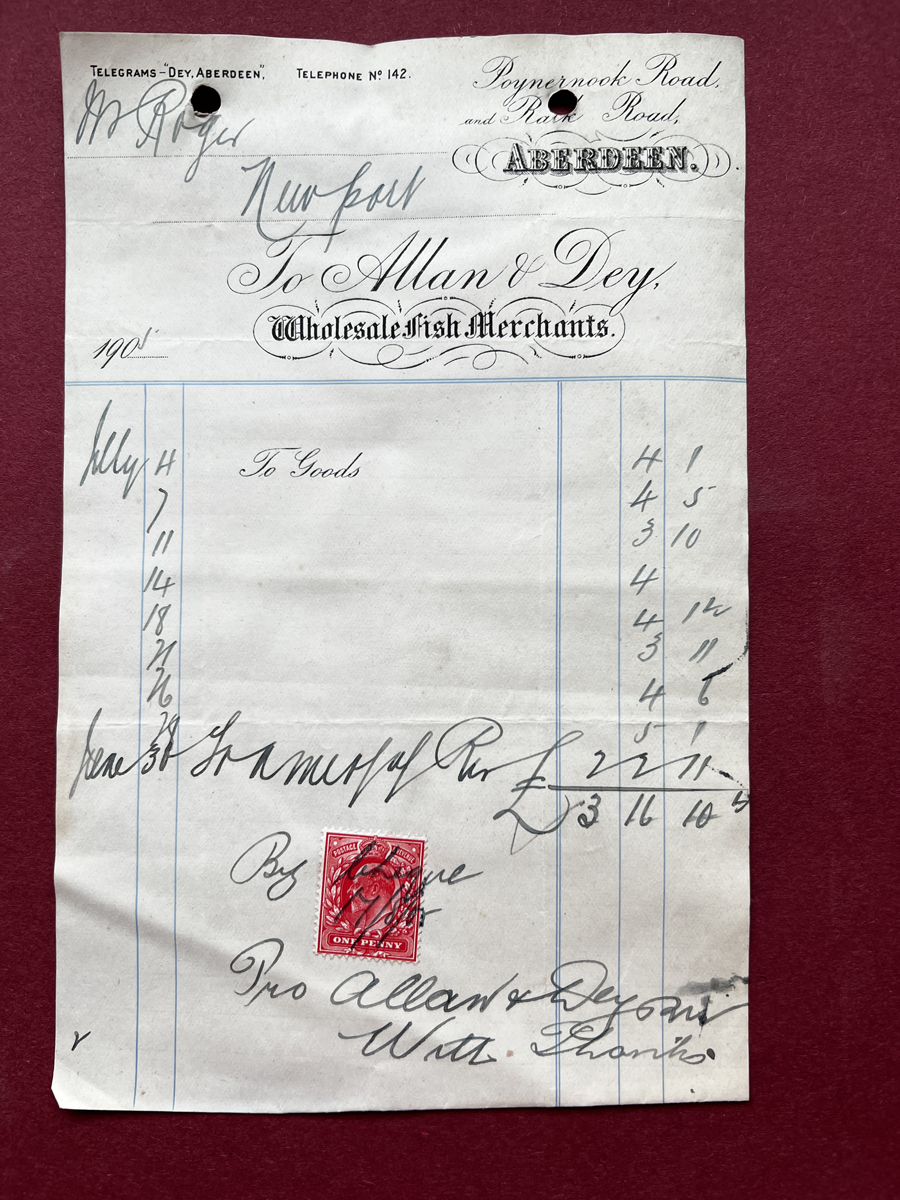 TELEGRAMS-"DEY, ABERDEEN", TELEPHONE No 142.
Poynernook Road,
and Raik Road,
ABERDEEN.
Mr Roger
Newport
To Allan & Dey,
Wholesale Fish Merchants.
1905
July 4 To Goods 4 1
7 4 5
11 3 10
14 4
18 4
21 3 11
26 4 6
28 5 1
June 30 £ 22 11
£ 3 16 10
By Cheque
POSTAGE REVENUE
17/8/05
ONE PENNY
Pro Allan & Dey
With Thanks.